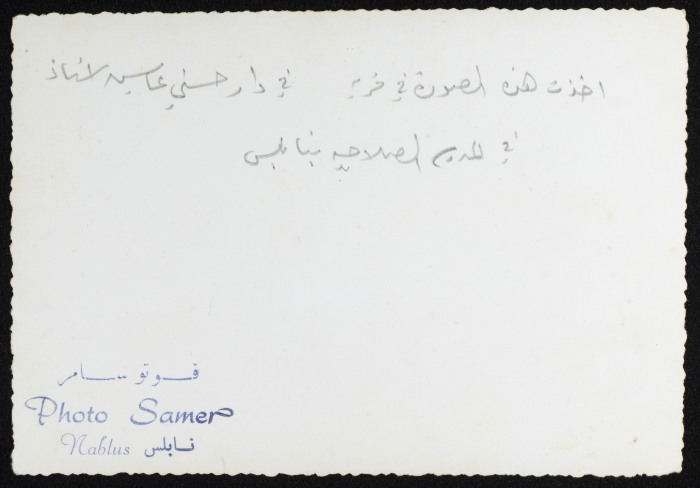 اخذت هذه الصورة في قريه في دار حسني عباس الاستاذ
في المدرسه الصلاحيه بنابلس
فوتو سامر
Photo Samer
Nablus نابلس